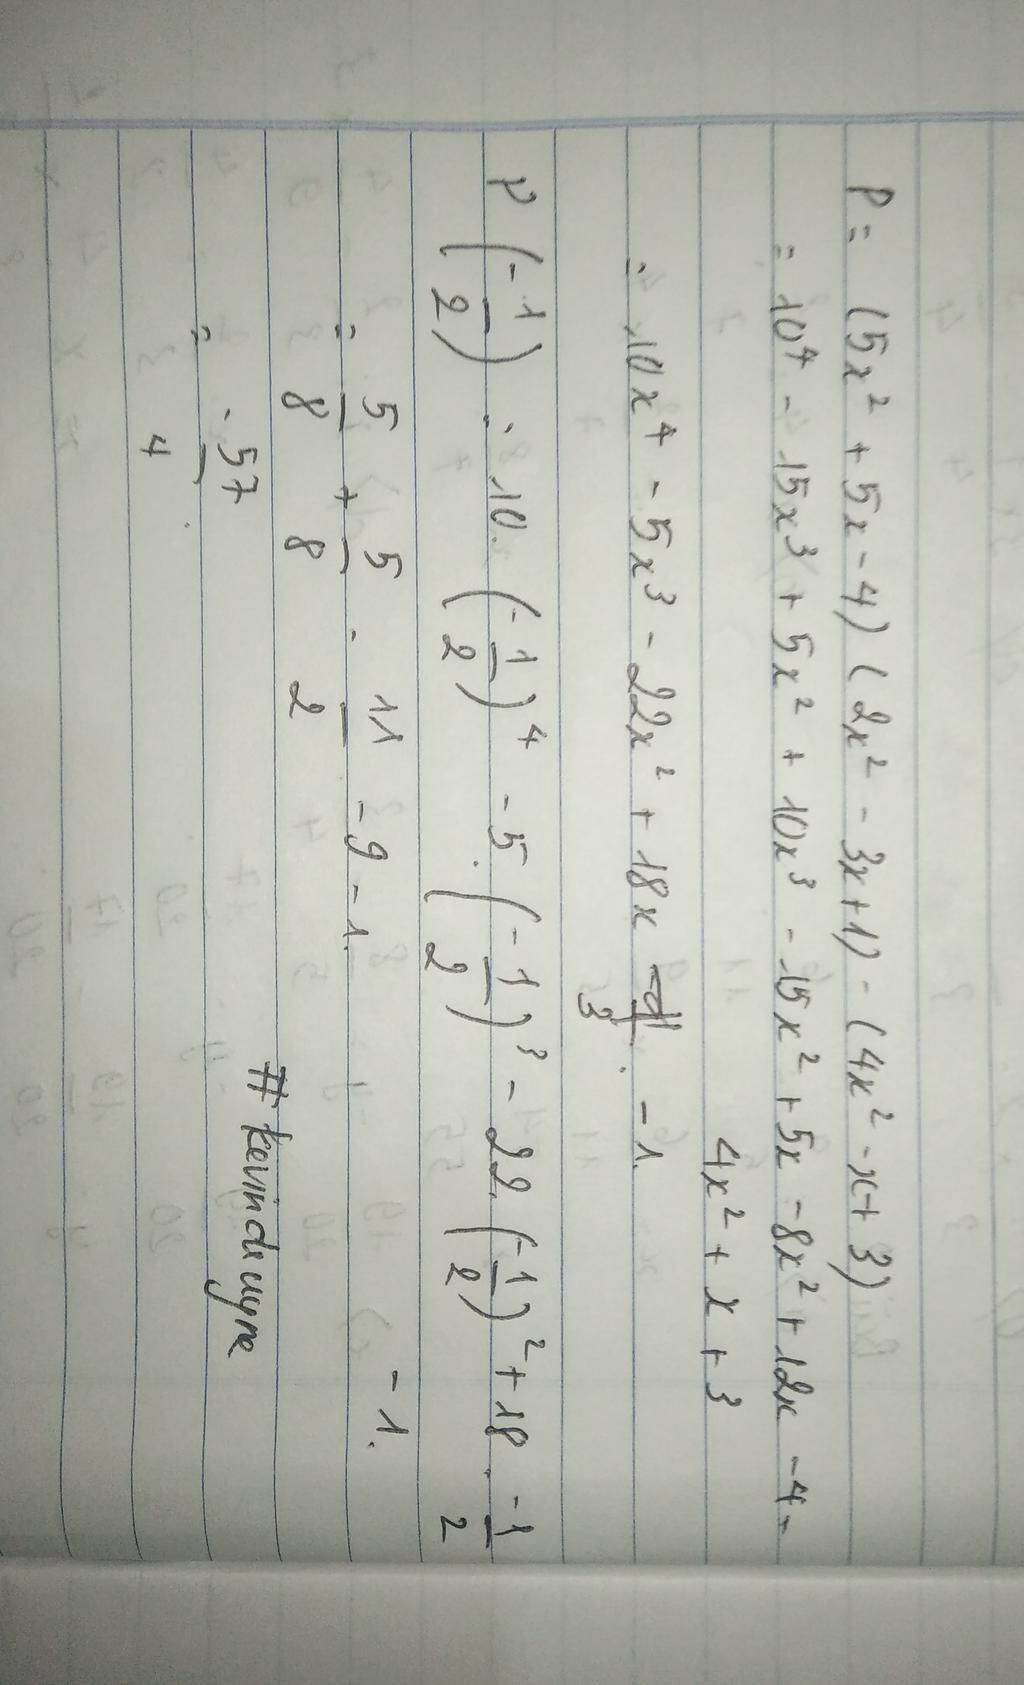 P = (5x² + 5x - 4) (2x² - 3x + 1) - (4x² - x + 3)
= 10⁴ - 15x³ + 5x² + 10x³ - 15x² + 5x - 8x² + 12x - 4 -
4x² + x + 3
= 10x⁴ - 5x³ - 22x² + 18x - 1.
P (-1/2) = 10. (-1/2)⁴ - 5. (-1/2)³ - 22. (-1/2)² + 18 . -1/2
- 1.
= 5/8 + 5/8 - 11/2 - 9 - 1.
= -57/4
# kevindinyne